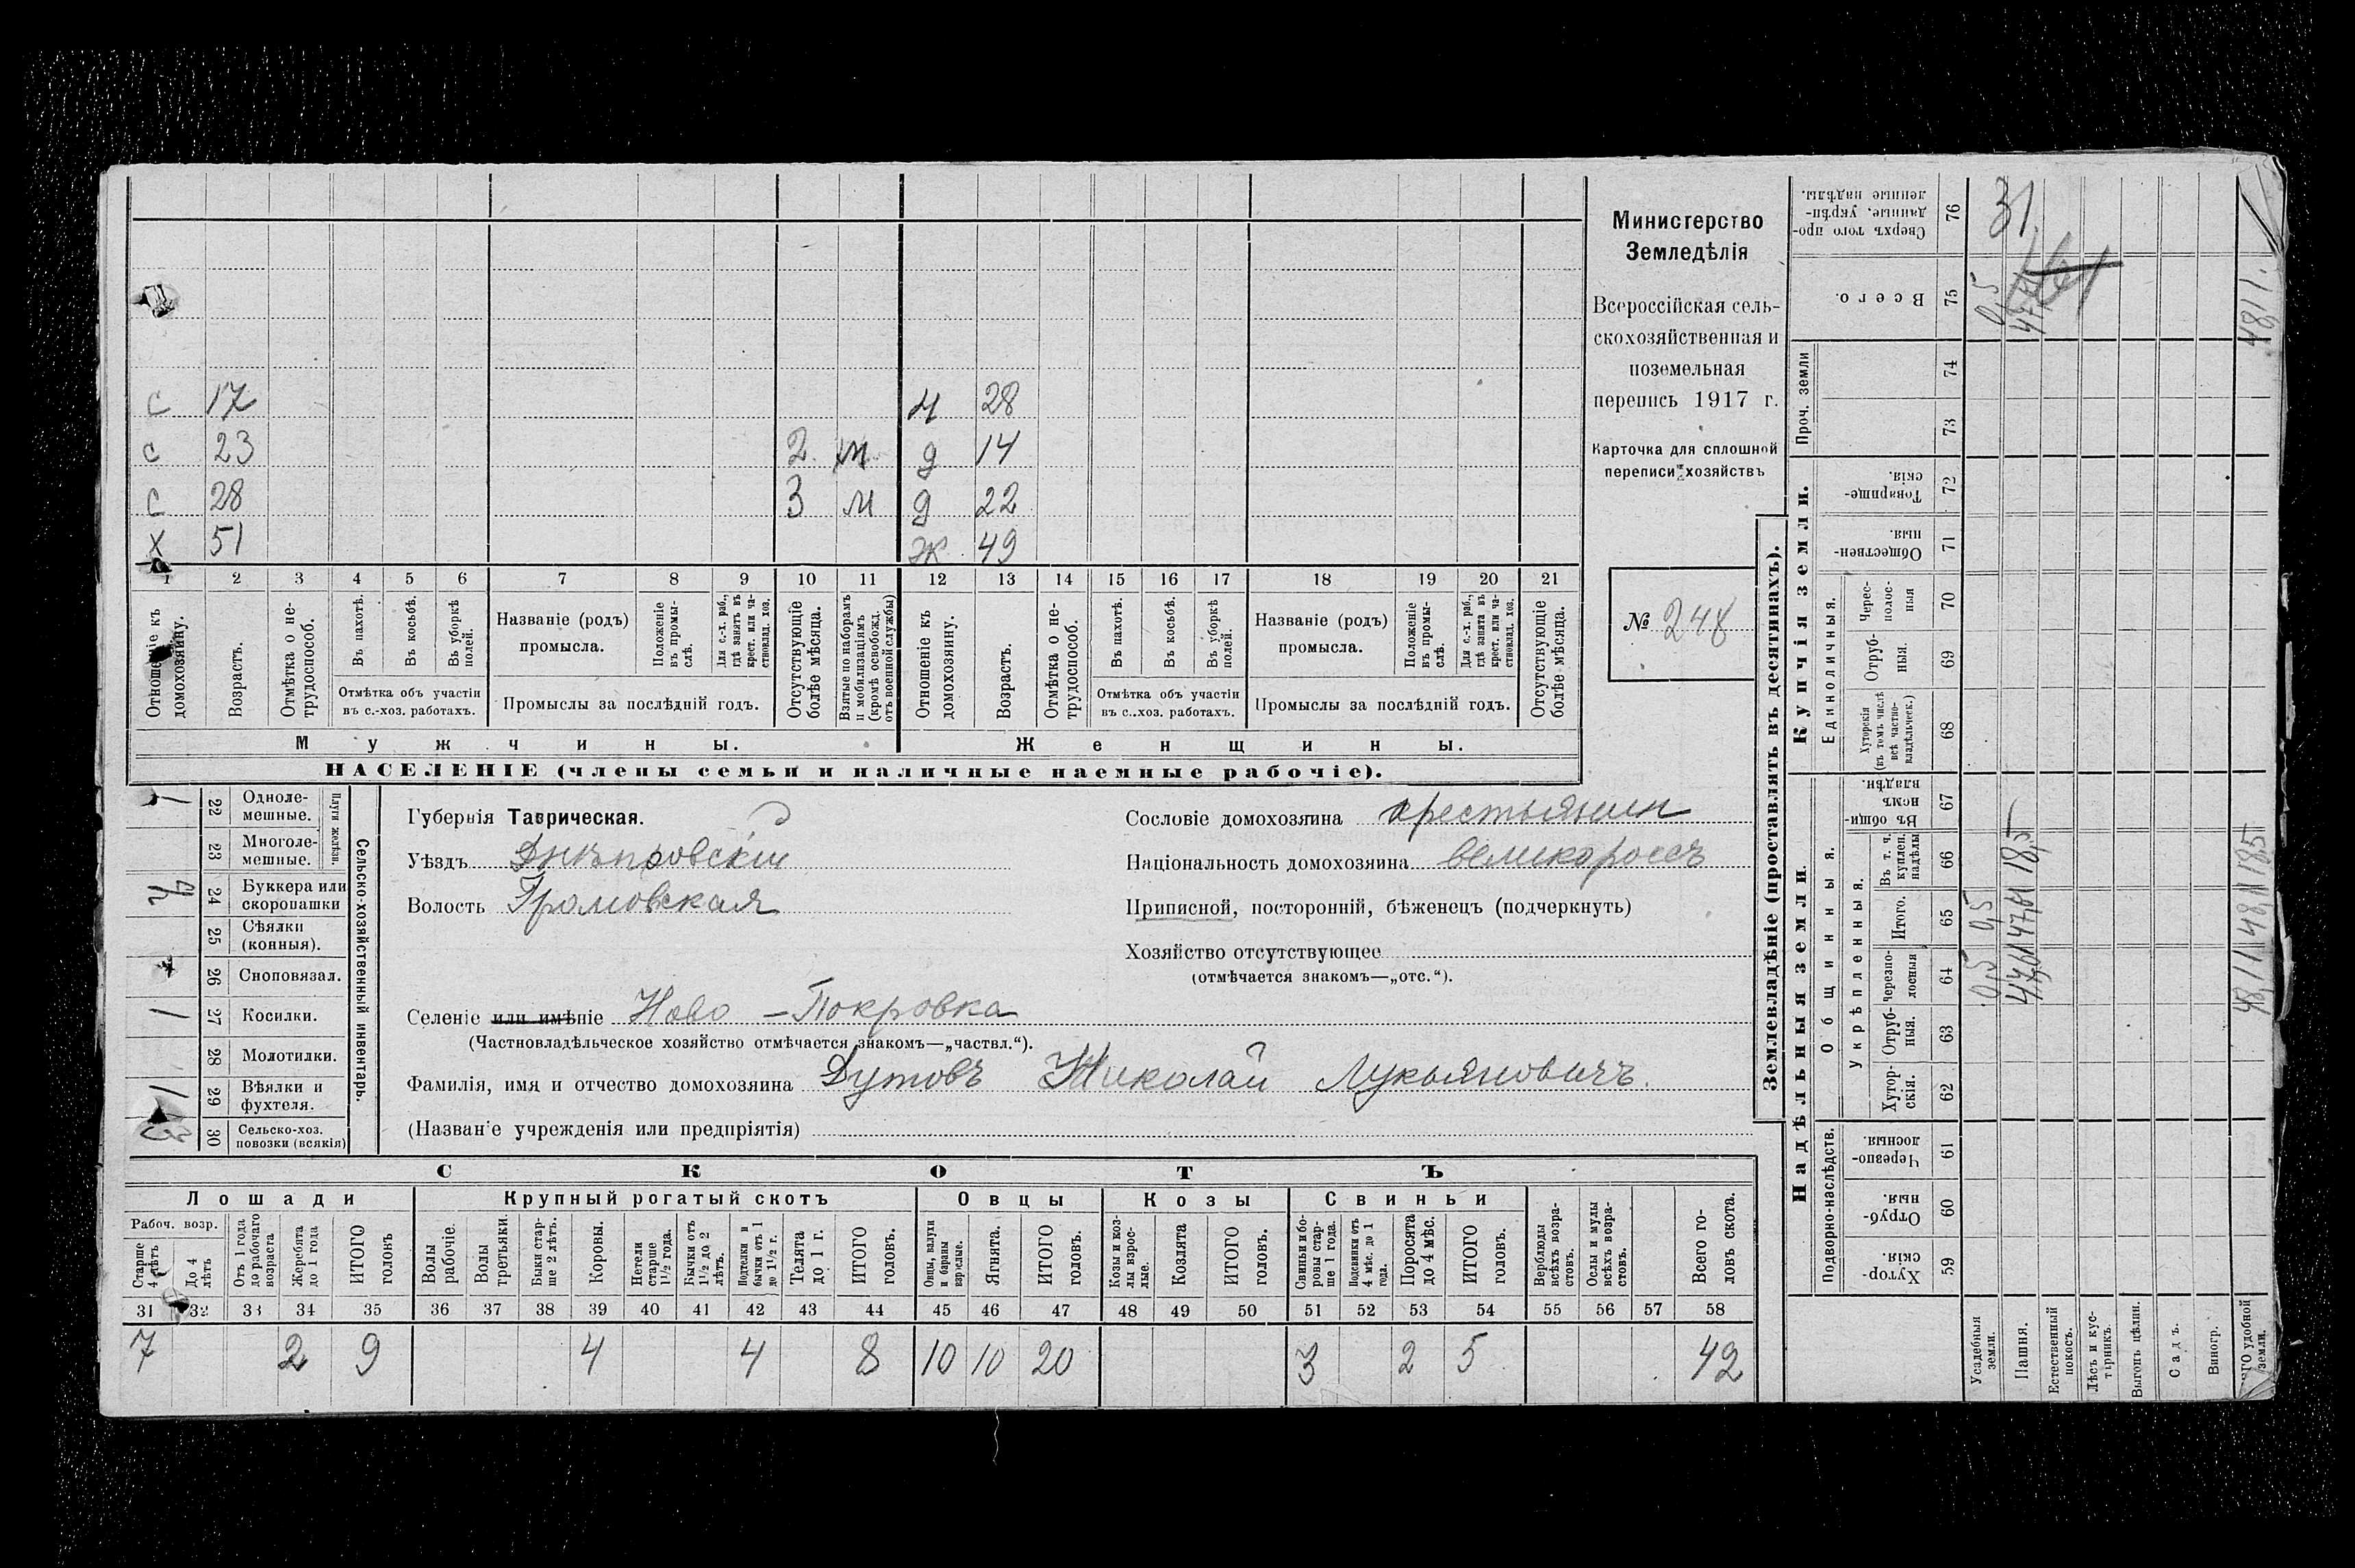 с 17 н 28
с 23 2 м д 14
с 28 3 м д 22
х 51 ж 49
1 2 3 4 5 6 7 8 9 10 11 12 13 14 15 16 17 18 19 20 21
Отношеніе къ домохозяину.
Возрастъ.
Отмѣтка о не-трудоспособ.
Въ пахотѣ.
Въ косьбѣ.
Въ уборкѣ полей.
Отмѣтка объ участіи
въ с.-хоз. работахъ.
Названіе (родъ)
промысла.
Положеніе въ промы-слѣ.
Для с.-х. раб., гдѣ занятъ въ крест. или ча-ствовлад. хоз.
Промыслы за послѣдній годъ.
Отсутствующіе болѣе мѣсяца.
Взятые по наборамъ и мобилизаціямъ (кромѣ освобожд. отъ военной службы)
Отношеніе къ домохозяину.
Возрастъ.
Отмѣтка о не-трудоспособ.
Въ пахотѣ.
Въ косьбѣ.
Въ уборкѣ полей.
Отмѣтка объ участіи
въ с..хоз. работахъ.
Названіе (родъ)
промысла.
Положеніе въ промы-слѣ.
Для с.-х. раб., гдѣ занята въ крест. или ча-ствовлад. хоз.
Промыслы за послѣдній годъ.
Отсутствующіе болѣе мѣсяца.
Мужчины.
Женщины.
НАСЕЛЕНІЕ (члены семьи и наличные наемные рабочіе).
Министерство
Земледѣлія
Всероссійская сель-
скохозяйственная и
поземельная
перепись 1917 г.
Карточка для сплошной
переписи хозяйствъ
№ 248
Сельско-хозяйственный инвентарь.
Плуги желѣзн.
22 Одноле-
мешные.
23 Многоле-
мешные.
24 Буккера или
скоропашки
25 Сѣялки
(конныя).
26 Сноповязал.
1 27 Косилки.
28 Молотилки.
1 29 Вѣялки и
фухтеля.
30 Сельско-хоз.
повозки (всякія)
Губернія Таврическая.
Уѣздъ Днѣпровскій
Волость Громовская
Сословіе домохозяина крестьянин
Національность домохозяина великороссъ
Приписной, посторонній, бѣженецъ (подчеркнуть)
Хозяйство отсутствующее
(отмѣчается знакомъ—„отс.“).
Селеніе или имѣніе Ново - Покровка
(Частновладѣльческое хозяйство отмѣчается знакомъ—„частвл.“).
Фамилія, имя и отчество домохозяина Дутовъ Николай Лукьяновичъ.
(Названіе учрежденія или предпріятія)
СКОТЪ
Лошади
Крупный рогатый скотъ
Овцы
Козы
Свиньи
Рабоч. возр.
Старше 4 лѣтъ
До 4 лѣтъ
Отъ 1 года до рабочаго возраста
Жеребята до 1 года
ИТОГО головъ
Волы рабочіе.
Волы третьяки.
Быки стар-ше 2 лѣтъ.
Коровы.
Нетели старше 1½ года.
Бычки отъ 1½ до 2 лѣтъ.
Подтелки и бычки отъ 1 до 1½ г.
Телята до 1 г.
ИТОГО головъ.
Овцы, валухи и бараны взрослые.
Ягнята.
ИТОГО головъ.
Козы и коз-лы взрос-лые.
Козлята
ИТОГО головъ.
Свиньи и бо-ровы стар-ше 1 года.
Подсвинки отъ 4 мѣс. до 1 года.
Поросята до 4 мѣс.
ИТОГО головъ.
Верблюды всѣхъ возра-стовъ.
Ослы и мулы всѣхъ возра-стовъ.
Всего го-ловъ скота.
31 32 33 34 35 36 37 38 39 40 41 42 43 44 45 46 47 48 49 50 51 52 53 54 55 56 57 58
7 2 9 4 4 8 10 10 20 3 2 5 42
Землевладѣніе (проставлять въ десятинахъ).
Надѣльныя земли.
Купчія земли.
Проч. земли
Подворно-наслѣдств.
Общинныя.
Укрѣпленныя.
Единоличныя.
Хутор-скія. 59
Отруб-ныя. 60
Черезпо-лосныя 61
Хутор-скія. 62
Отруб-ныя. 63
Черезпо-лосныя 64
Итого. 65
Въ т. ч. куплен. надѣлы 66
Въ общи-нномъ владѣн. 67
Хуторскія (въ томъ числѣ всѣ частно-владѣльческ.) 68
Отруб-ныя. 69
Черес-полос-ныя 70
Обществен-ныя. 71
Товарище-скія. 72
73
74
Всего. 75
Сверхъ того про-данные, укрѣп-ленные надѣлы. 76
Усадебныя земли. 0,5 0,5 0,5
Пашня. 18,5 31
Естественный покосъ.
Лѣсъ и кус-тарникъ.
Выгонъ цѣлин.
Садъ.
Виногр.